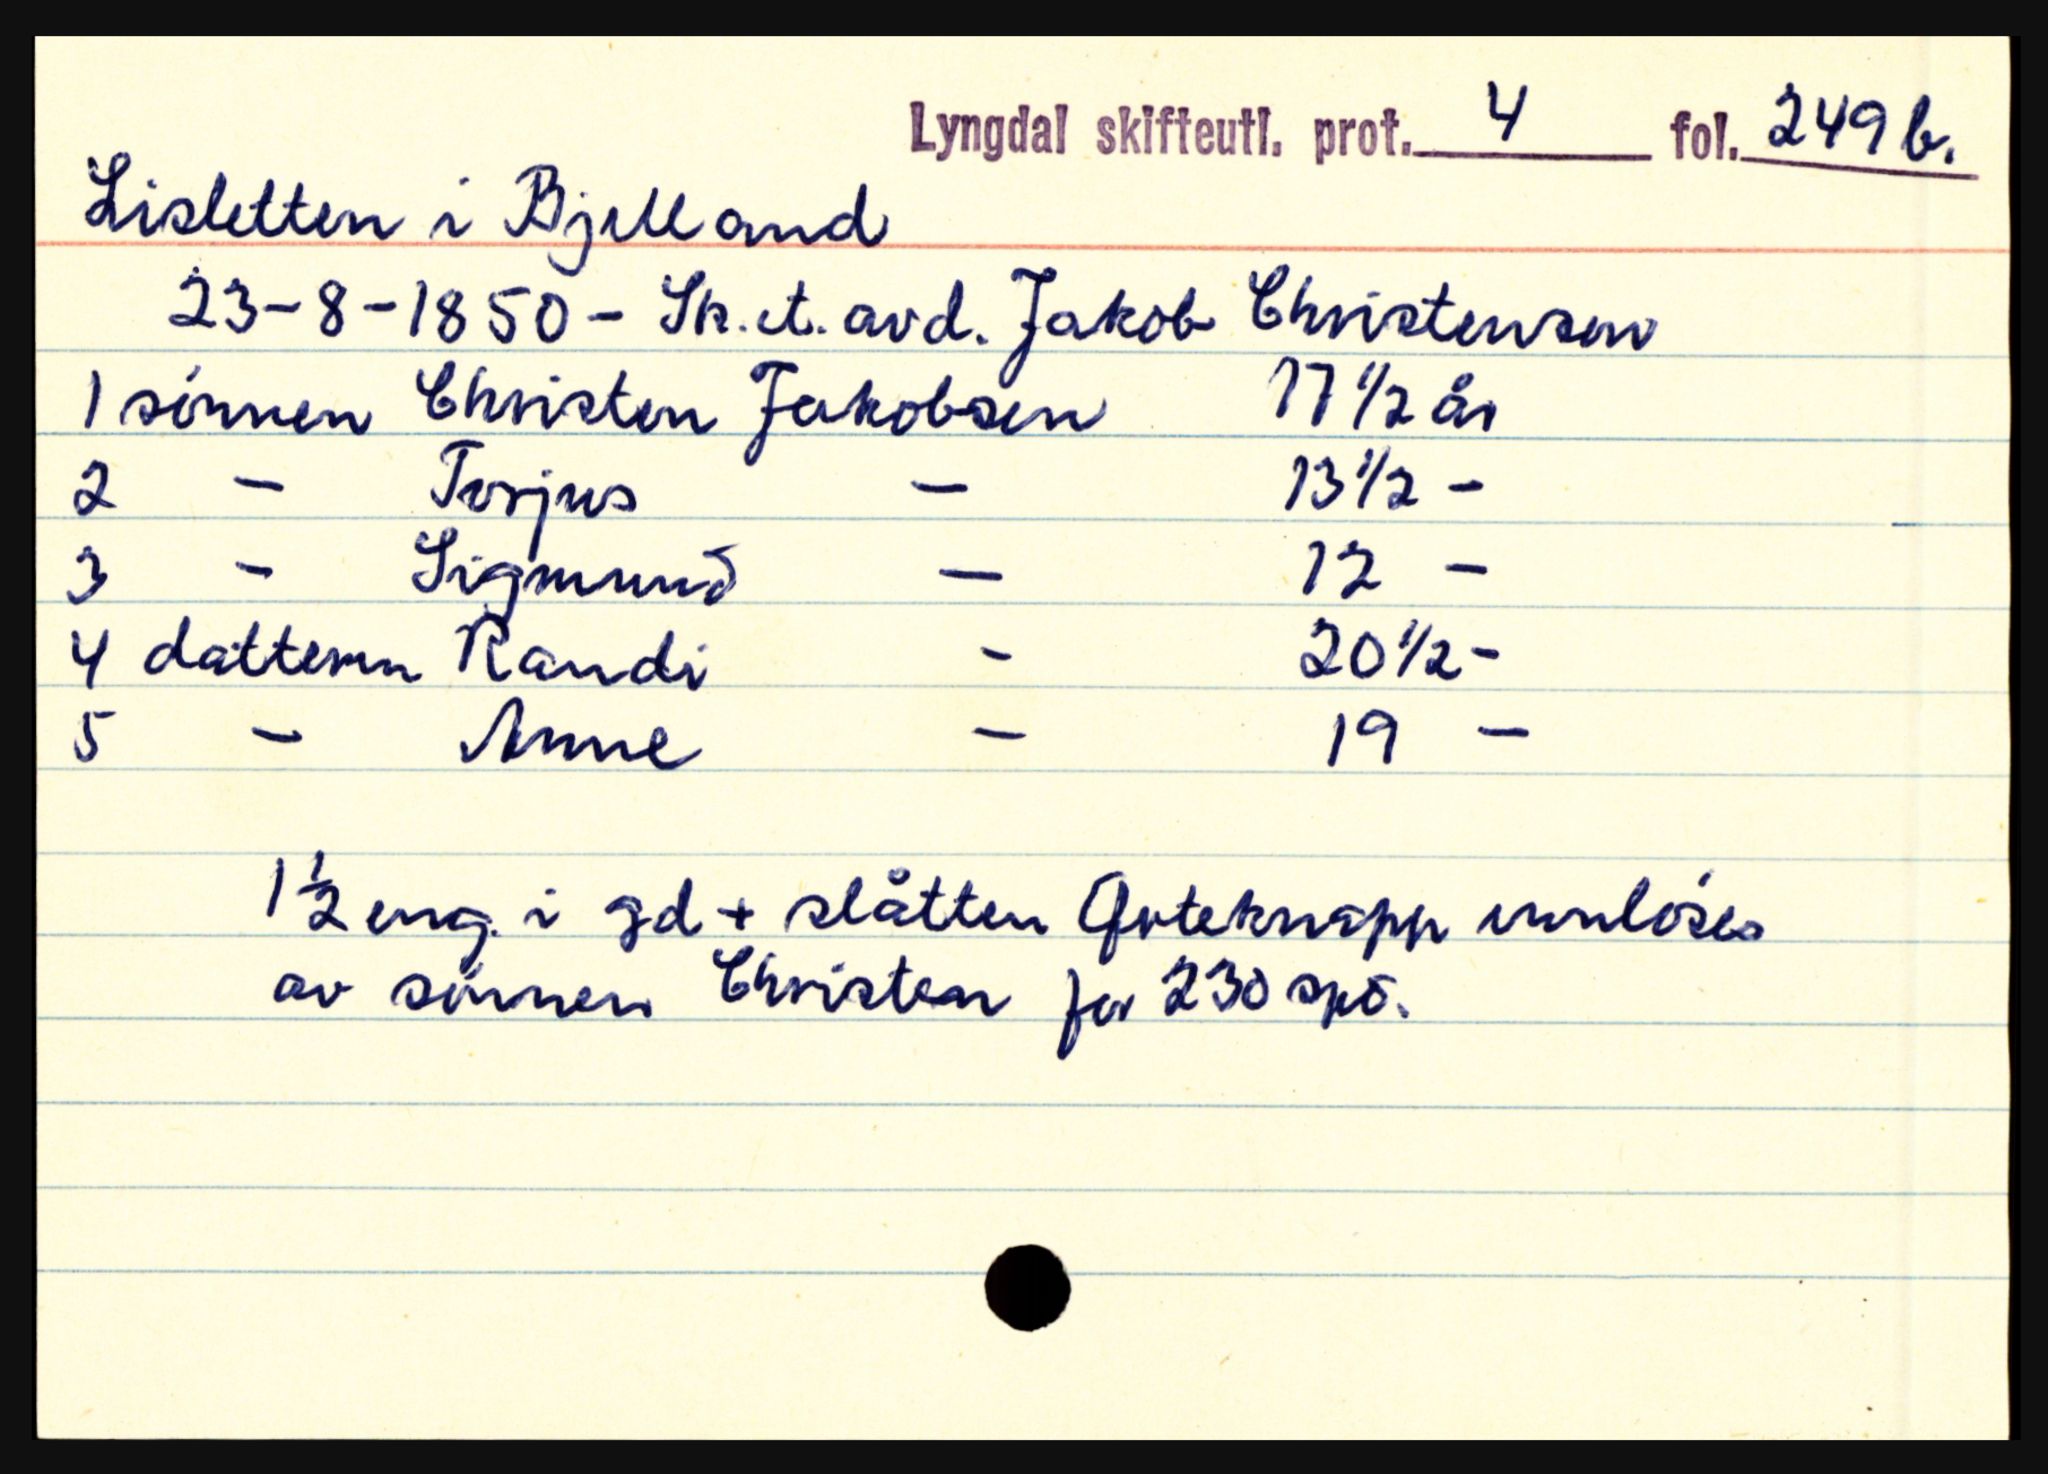 Lyngdal skifteutl. prot. 4 fol. 249 b.
Lisletten i Bjelland
23-8-1850 - Sk. et. avd. Jakob Christensen
1 sönnen Christen Jakobsen 17 1/2 år
2 - Torjus - 13 1/2 -
3 - Sigmund - 12 -
4 datteren Randi - 20 1/2 -
5 - Anne - 19 -
1 1/2 eng. i gd + slåtten Qvteknapp innlöses
av sönnen Christen for 230 spd.